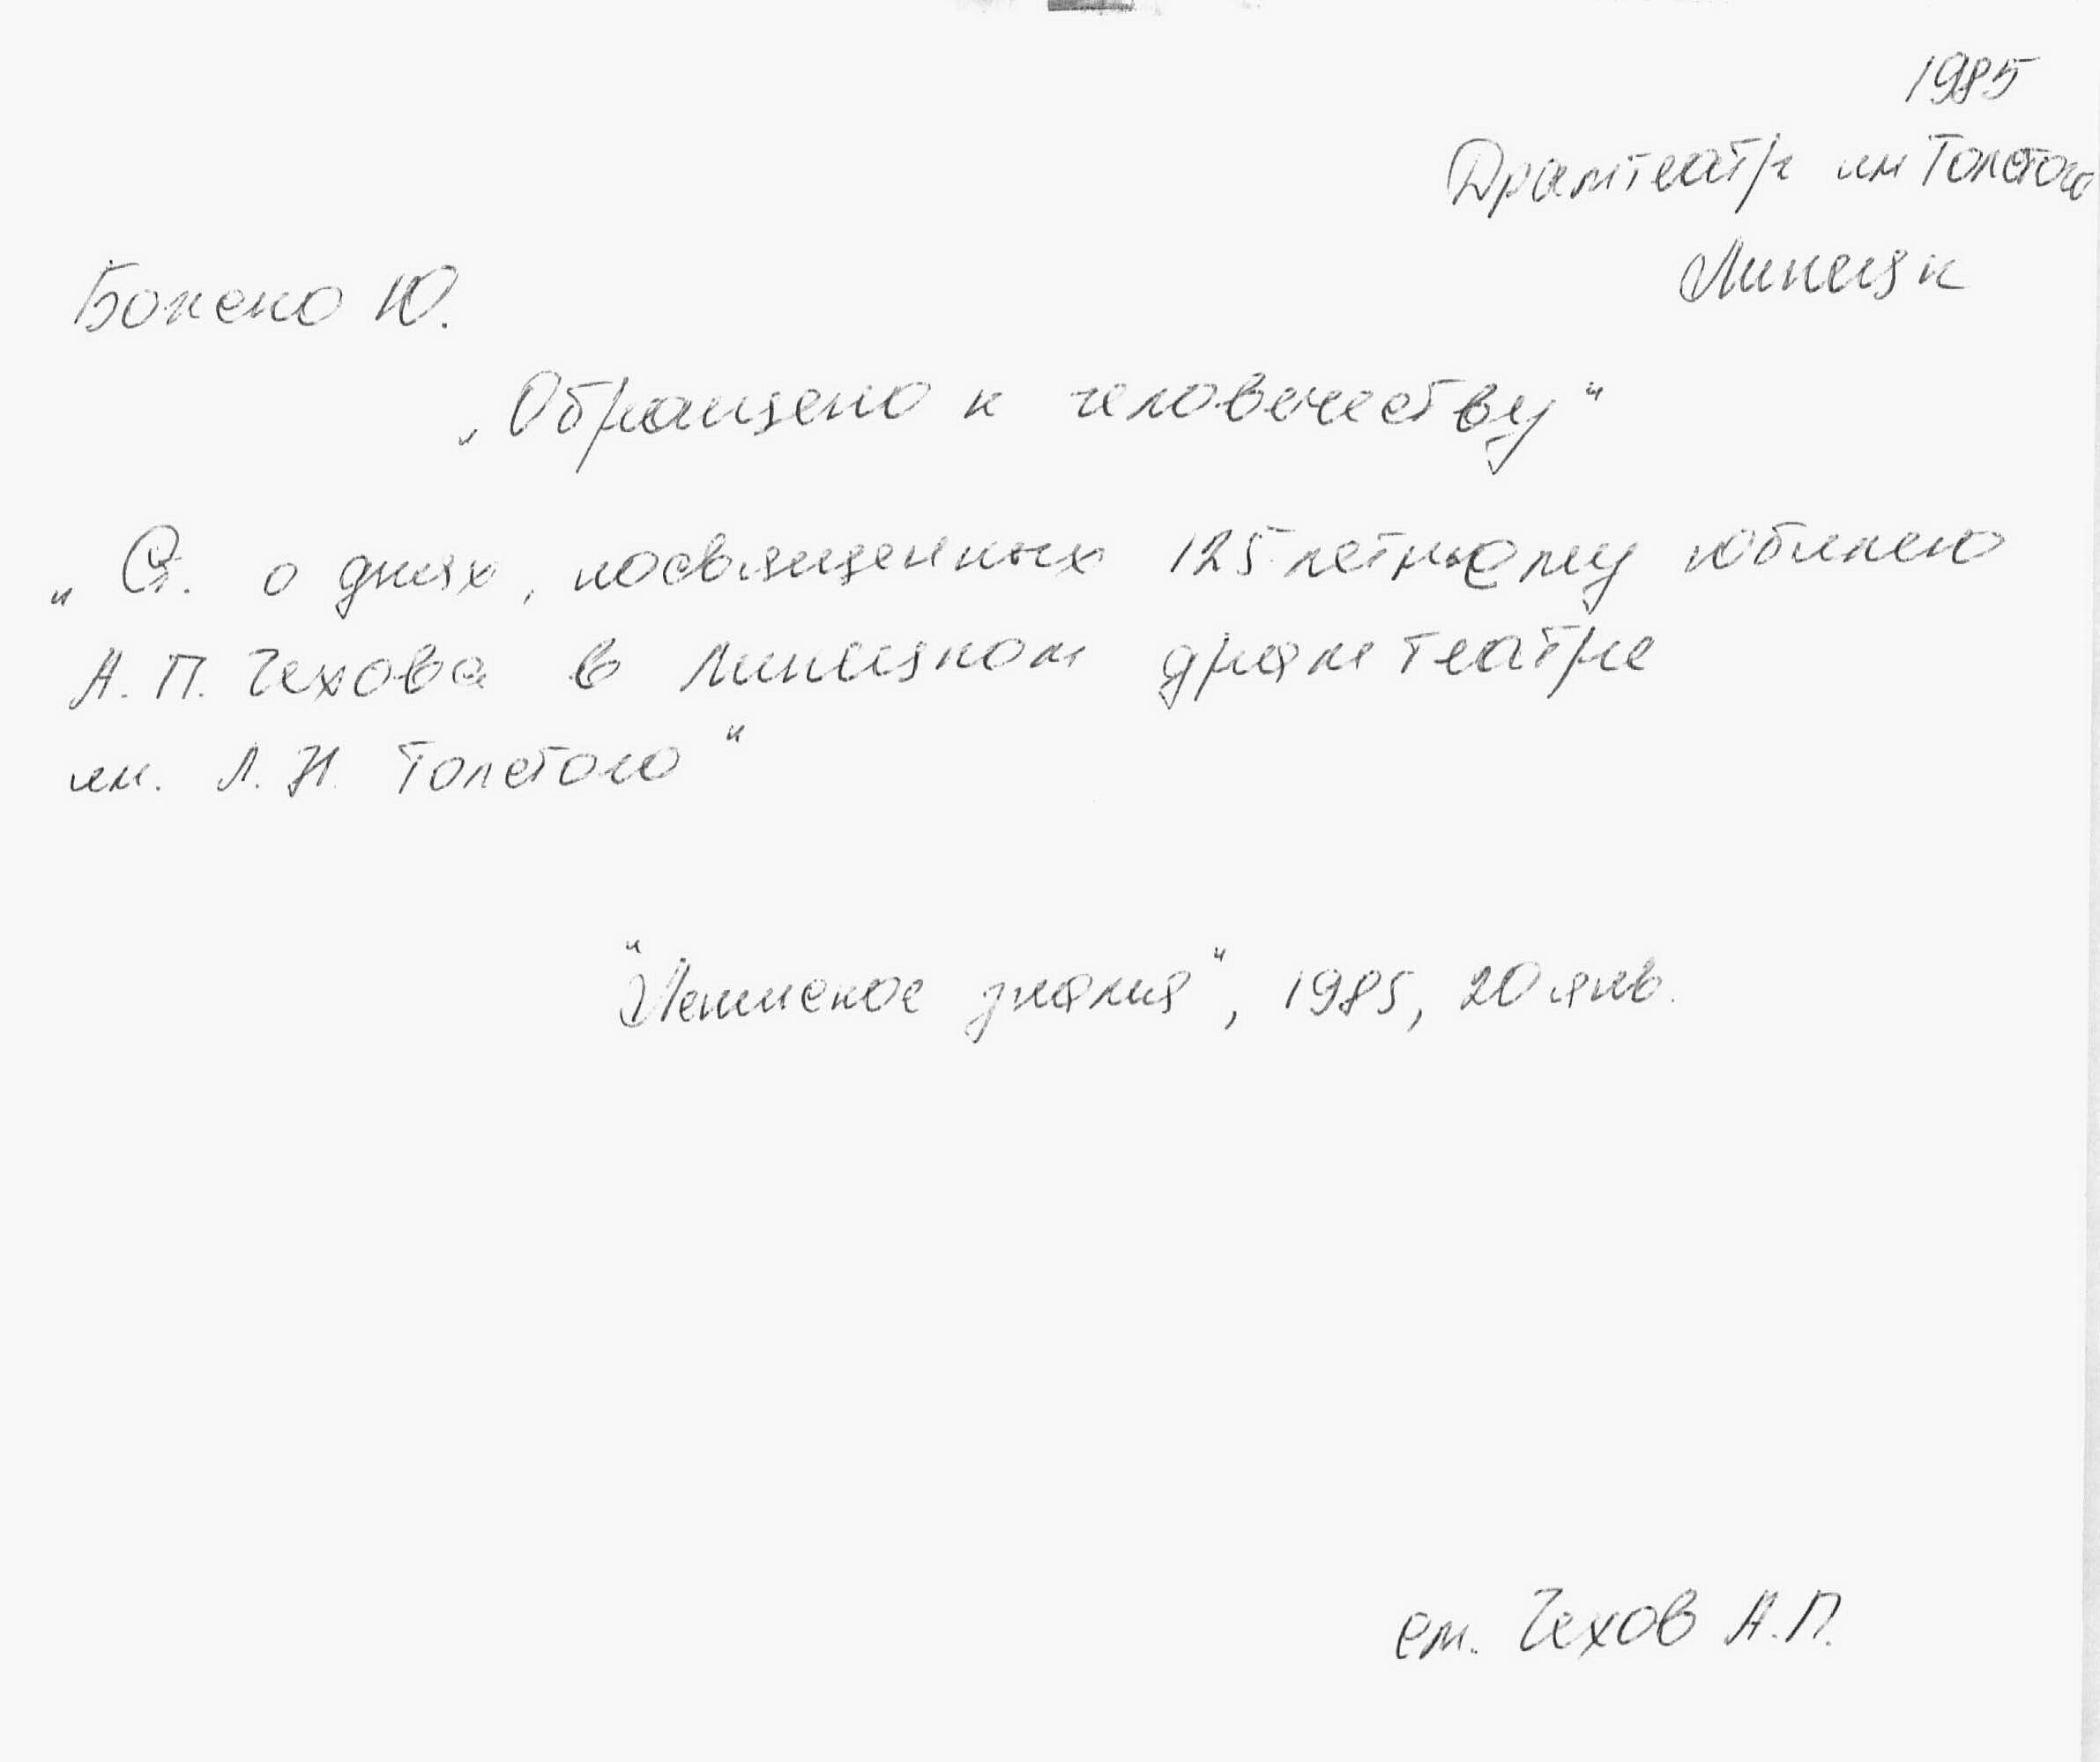 1985
Драмтеатр им Толстого
Липецк
Божено Ю.
„Обращено к человечеству"
„Ст. о днях, посвященных 125 летнему юбилею
А. П. Чехова в Липецком драмтеатре
им. Л. Н. Толстого"
"Ленинское знамя", 1985, 20 янв.
см. Чехов А.П.